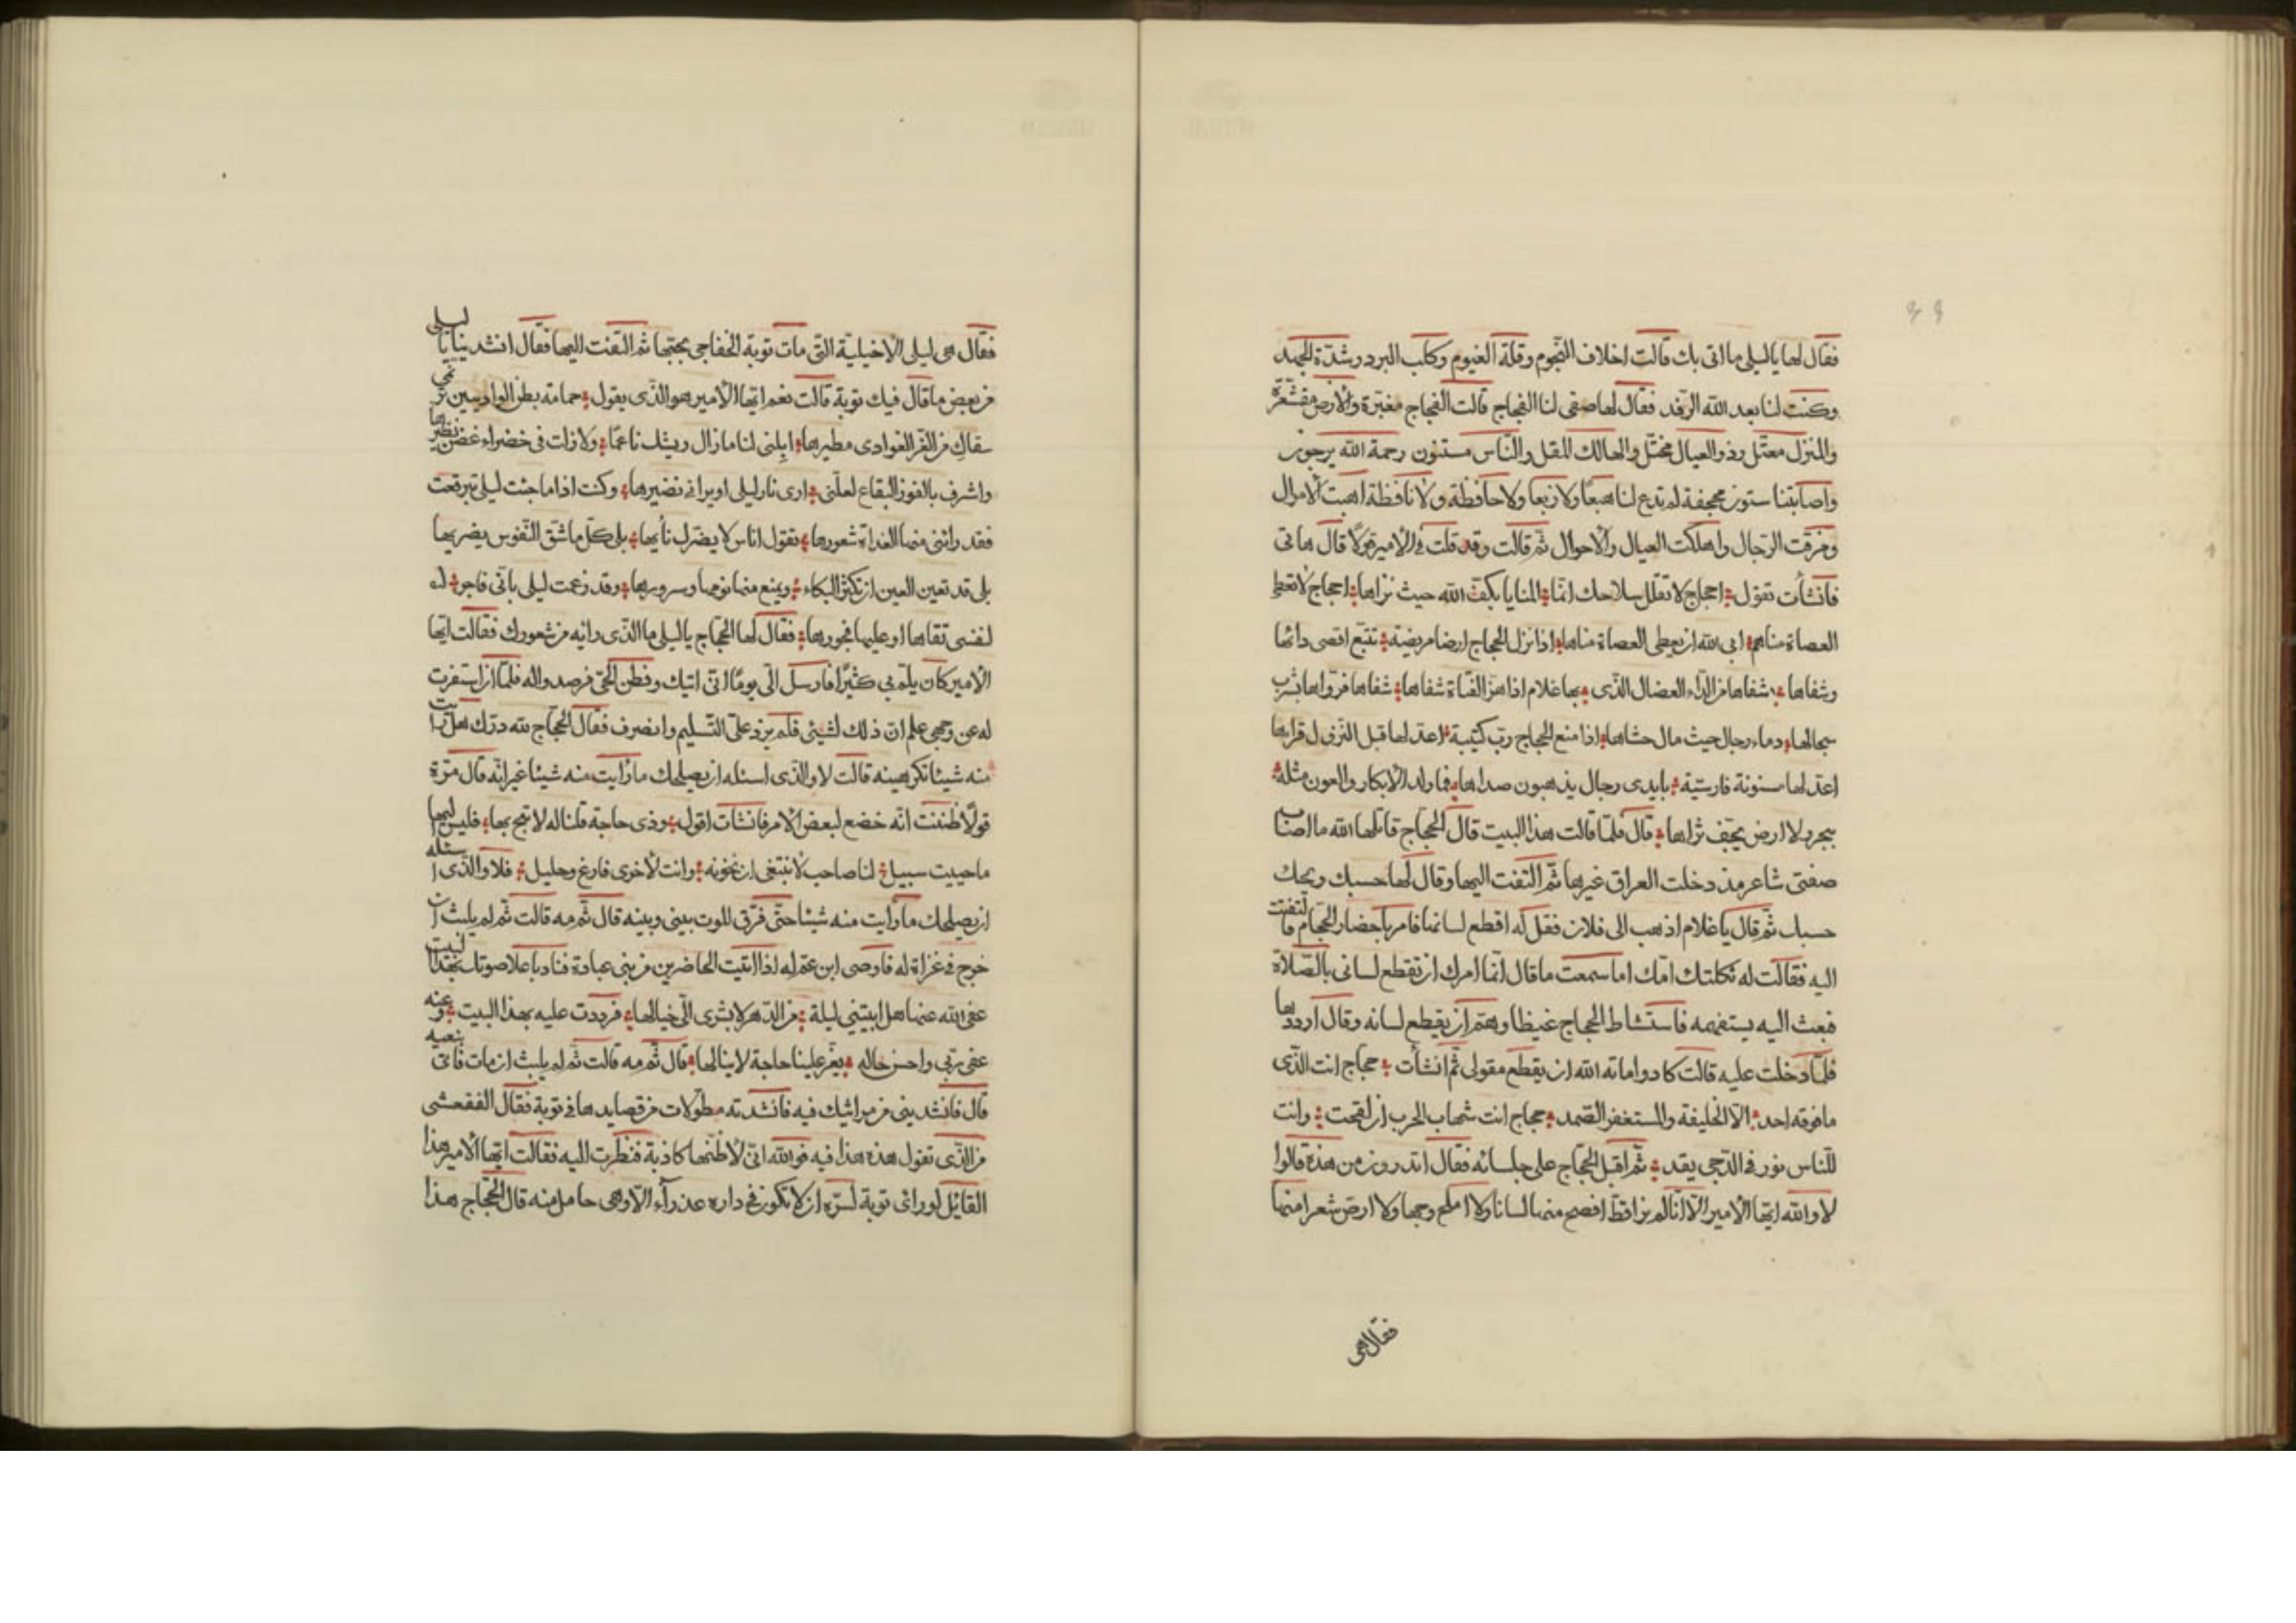 فقال لها يا ليلى ما اتى بك قالت اخلاف النجوم وقلة الغيوم وكلب البرد وشدّة الجهد
وكنت لنا بعد الله الرفد فقال لها صفى لنا الفجاج قالت الفجاج مغبرّة والأرض مقشعرّة
والمنزل معتّل وذو العيال مختّل والهالك للمقل والنّاس مستنون رحمة الله يرجون
واصابتنا سنون مجحفة لم تدع لنا هبعًا ولا ربعا ولا حافظة ولا نافظة اهبت الأموال
ومزقت الرّجال واهلكت العيال والأحوال ثمّ قالت وقد قلت فى الأمير قولًا قال هاتى
فانشأت تقول احجاج لا تقلل سلاحك انّما المنايا بكفّ الله حيث نراها احجاج لا تعطى
العصاة مناهم ابى الله ان يعطى العصاة مناها اذا نزل الحجاج ارضا مريضة تتبّع اقصى دائها
وشفاها شفاها من الدّاء العضال الذّى بها غلام اذا هزّ القناة شفاها شفاها فروّاها بشرب
سجالها دماء رجال حيث مال حشاها اذا سمع الحجاج رب كتيبة اعد لها قبل النزول قراها
اعد لها مسنونة فارسيّة بايدى رجال يذهبون صداها فما ولد الأبكار والعون مثله
ببحر ولا ارض يجفّ ثراها قال فلمّا قالت هذا البيت قال الحجّاج قاتلها الله ما اصاب
صفتى شاعر مذ دخلت العراق غيرها ثمّ التفت اليها وقال لها حسبك ويحك
حسبك ثمّ قال يا غلام اذهب الى فلان فقل له اقطع لسانها فامر باحضار الحجّام فالتفتت
اليه فقالت له ثكلتك امّك اما سمعت ما قال انّما امرك ان تقطع لسانى بالصّلاة
فبعث اليه يستفهمه فاستشاط الحجّاج غيظا وهمّ ان يقطع لسانه وقال ارددها
فلمّا دخلت عليه قالت كاد واماته الله ان يقطع مقولى ثمّ انشأت حجاج انت الذّى
ما فوقه احد الّا الخليفة والمستغفر الصّمد حجاج انت شهاب الحرب ان لقحت وانت
للنّاس نور فى الدّجى يقد ثمّ اقبل الحجّاج على جلسائه فقال اتدرون من هذه قالوا
لا والله ايّها الأمير الّا انّا لم نرا قطّ افصح منها لسانا ولا املح وجها ولا ارصّ شعرا منها
فقال هى
فقال هى ليلى الأخيلية التّى مات توبة الخفاجى بحبّها ثمّ التفت اليها فقال انشدينا يا ليلى
من بعض ما قال فيك توبة قالت نعم ايّها الأمير هو الذّى يقول حمامة بطن الواديين ترنّمى
سقاك من الغرّ الغوادى مطيرها ابلنى لنا ما زال ريشك ناعمًا ولا زلت فى خضراء غضن نظيرها
واشرف بالفوز البقاع لعلّنى ارى نار ليلى او يرانى نضيرها وكنت اذا ما جئت ليلى تبرقعت
فقد رابنى منها الغداة شعورها تقول اناس لا يضرّك نأيها بلى كلّ ما شقّ النّفوس يضيرها
بلى قد تعين العين ان تكثر البكاء ويمنع منها نومها وسرورها وقد زعمت ليلى بأنّى فاجر لـه
لنفسى تقاها او عليها فجورها فقال لها الحجّاج يا ليلى ما الذّى رابه من شعورك فقالت ايّها
الأمير كان يلمّ بى كثيرًا فارسل الىّ يومًا انّى اتيك وفطن الحىّ فرصدوا له فلمّا ان اسفرت
له عن وجهى علم انّ ذلك لشيئ فلم يزد على التّسليم وانصرف فقال الحجّاج لله درّك هل رايت
منه شيئا تكرهينه قالت لا والذّى اسئله ان يصلحك ما رايت منه شيئا غير انّه قال مرّة
قولًا ظننت انّه خضع لبعض الأمر فانشات اقول وذى حاجة قلنا له لا تبح بها فليس اليها
ما حييت سبيل لنا صاحب لا نبتغى ان نخونه وانت لأخرى فارغ وحليل فلا والذّى اسئله
ان يصلحك ما رايت منه شيئا حتّى فرّق الموت بينى وبينه قال ثمّ مه قالت ثمّ لم يلبث ان
خرج فى غزاة له فاوصى ابن عمّ له اذا اتيت الحاضرين من بنى عبادة فناد باعلا صوتك بهذا البيت
عفى الله عنها هل ابيتنّ ليلة من الدّهر لا يسرى الىّ خيالها فرددت عليه بهذا البيت وعنه
عفى ربّى واحسن حاله يعزّ علينا حاجة لا ينالها قال ثمّ مه قالت ثمّ لم يلبث ان مات فاتى نعيه
قال فانشدينى من مراثيك فيه فانشدته مطوّلات من قصايدها فى توبة فقال الفقعسى
من الذّى تقول هذه هذا فيه فوالله انّى لأظنّها كاذبة فنظرت اليه فقالت ايّها الأمير هذا
القائل لو رائى توبة لسرّه ان لا تكون فى داره عذراء الّا وهى حامل منه قال الحجّاج هذا